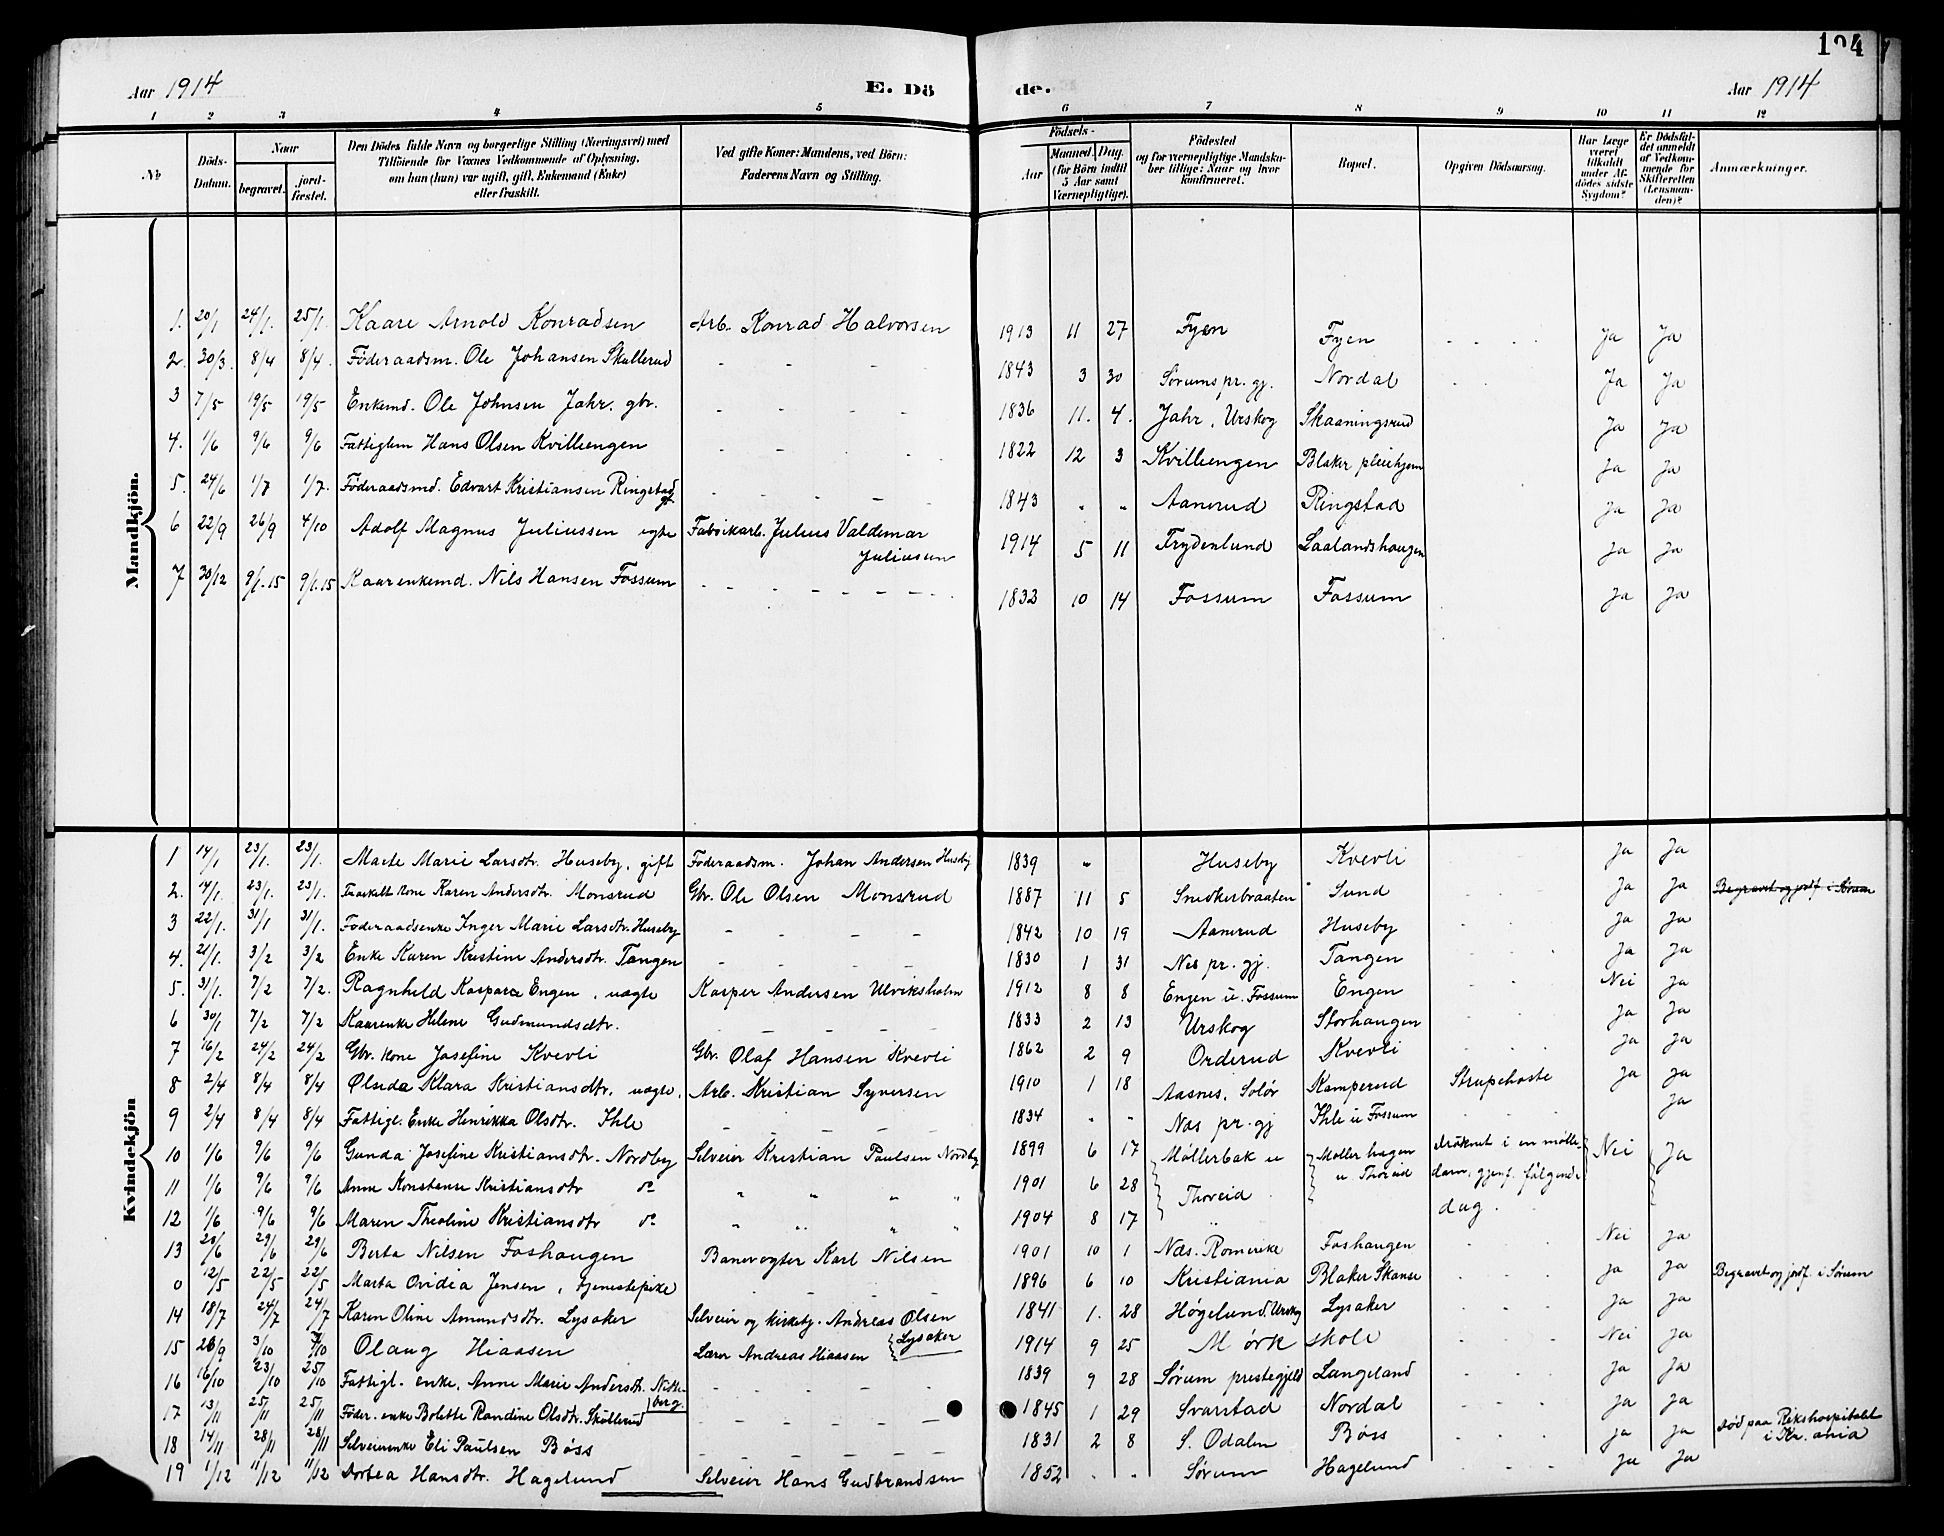 124
Aar 1914 E. Dö de. Aar 1914
1 2 3 4 5 6 7 8 9 10 11 12
№ Döds-Datum. Naar begravet. jordfæstet. Den Dödes fulde Navn og borgerlige Stilling (Næringsvei) med Tilföiende for Voxnes Vedkommende af Oplysning, om han (hun) var ugift, gift, Enkemand (Enke) eller fraskilt. Ved gifte Koner: Mandens, ved Börn: Faderens Navn og Stilling. Födsels- Aar Maaned. Dag. (for Börn indtil 5 Aar samt Værnepligtige). Födested og for værnepligtige Mandskaber tillige: Naar og hvor konfirmeret. Bopæl. Opgiven Dödsaarsag. Har Læge været tilkaldt under Afdödes sidste Sygdom? Er Dödsfaldet anmeldt af Vedkommende for Skifteretten (Lensmanden)? Anmærkninger.
Mandkjön.
1. 20/1 24/1. 25/1. Kaare Arnold Konradsen Arb. Konrad Halvorsen 1913 11 27 Fyen Fyen Ja Ja
2. 30/3. 8/4 8/4. Føderaadsm. Ole Johansen Skullerud 1843 3 30 Sørums pr. gj. Nordal Ja Ja
3 7/5 19/5 19/5 Enkemd. Ole Johnsen Jahr. gbr. 1836 11. 4. Jahr, Urskog Skaaningsrud Ja Ja
4. 1/6 9/6 9/6 Fattiglem Hans Olsen Kvillengen 1822 12 3 Kvillengen Blaker pleiehjem Ja Ja
5. 24/6 1/7 1/7. Føderaadsmd. Edvart Kristiansen Ringstad 1843 " " Aanerud Ringstad Ja Ja
6 22/9 26/9 4/10 Adolf Magnus Juliussen egte Fabrikarb. Julius Valdemar
Juliussen 1914 5 11 Frydenlund Laalandshaugen Ja Ja
7 30/12 9/1.15 9/1.15 Kaarenkemd. Nils Hansen Fossum 1832 10 14 Fossum Fossum Ja Ja
Kvindekjön
1 14/1 23/1. 23/1. Marte Marie Larsdtr. Huseby, gift Føderaadsm. Johan Andersen Huseby 1839 " Huseby Kvevli Ja Ja
2. 14/1. 23/1. 23/1. Fraskilt kone Karen Andersdtr. Monsrud Gbr. Ole Olsen Monsrud 1887 11 5 Snedkerbraaten Sund Ja Ja Begravet og jordf. i Sørum
3 22/1. 31/1 31/1. Føderaadsenke Inger Marie Larsdtr. Huseby 1842 10 19 Aanerud Huseby Ja Ja
4. 21/1. 3/2 3/2 Enke Karen Kristine Andersdtr. Tangen 1830 1 31 Nes pr. gj. Tangen Ja Ja
5. 31/1. 7/2 7/2. Ragnhild Kaspara Engen, uægte Kasper Andersen Ulviksholm 1912 8 8 Engen u. Fossum Engen Nei Ja
6 30/1 7/2 7/2 Kaarenke Helene Gudmundsdtr. 1833 2 13 Urskog Storhaugen Ja Ja
7 16/2 24/2 24/2 Gbr. kone Josefine Kvevli Gbr. Olaf Hansen Kvevli 1862 2 9 Orderud Kvevli Ja Ja
8 2/4 8/4 8/4 Olseda Klara Kristiansdtr, uægte. Arb. Kristian Syversen 1910 1 18 Aasnes, Solør Kamperud Strupehoste Ja Ja
9 2/4 8/4 8/4 Fattigl. Enke Henrikka Olsdtr. Ihle 1834 " " Nes pr. gj Ihle u Fossum Ja
10 1/6 9/6 9/6 Gunda Josefine Kristiansdtr. Nordby Selveier Kristian Paulsen Nordby 1899 6 17 Møllerbak u Møllerhagen druknet i en mølle- Nei Ja
11 1/6 9/6 9/6 Anne Konstanse Kristiansdtr do " " " " 1901 6 28 Thoreid u Thoreid dam, gjenf. følgende
12 1/6 9/6 9/6 Maren Theoline Kristiansdtr do " " " " 1904 8 17 dag.
13 20/6 29/6 29/6 Berta Nilsen Foshaugen Banevogter Karl Nilsen 1901 10 1 Nds. Romerike Foshaugen Nei Ja
0 12/5 22/5 22/5 Marta Ovidia Jensen, tjenestepike 1896 6 10 Kristiania Blaker Skanse Ja Ja Begravet og jordf. i Sørum
14 18/7 24/7 24/7 Karen Oline Amundsdtr. Lysaker Selveier og kirketj. Andreas Olsen
Lysaker 1841 1. 28 Høgelund. Urskog Lysaker Ja Ja
15 26/9 3/10 3/10 Olaug Hiaasen Lærer Andreas Hiaasen 1914 9 25 Mørk skole Nei Ja
16 16/10 23/10 25/10 Fattigl. enke, Anne Marie Andersdtr. Nitte-
berg 1839 9 28 Sørum prestegjeld Langeland Ja Ja
17 13/11 25/11 25/11 Føder. enke Bolette Randine Olsdtr. Skullerud 1845 1 29 Svarstad Nordal Ja Ja
18 14/11 28/11 28/11 Selveierenke Eli Paulsen Bøss 1831 2 8 S. Odalen Bøss Ja Ja død paa Rikshospitalet
i Kr. ania
19 1/12 11/12 11/12 Dortea Hansdtr. Hagelund Selveier Hans Gudbrandsen 1852 " " Sørum Hagelund Ja Ja